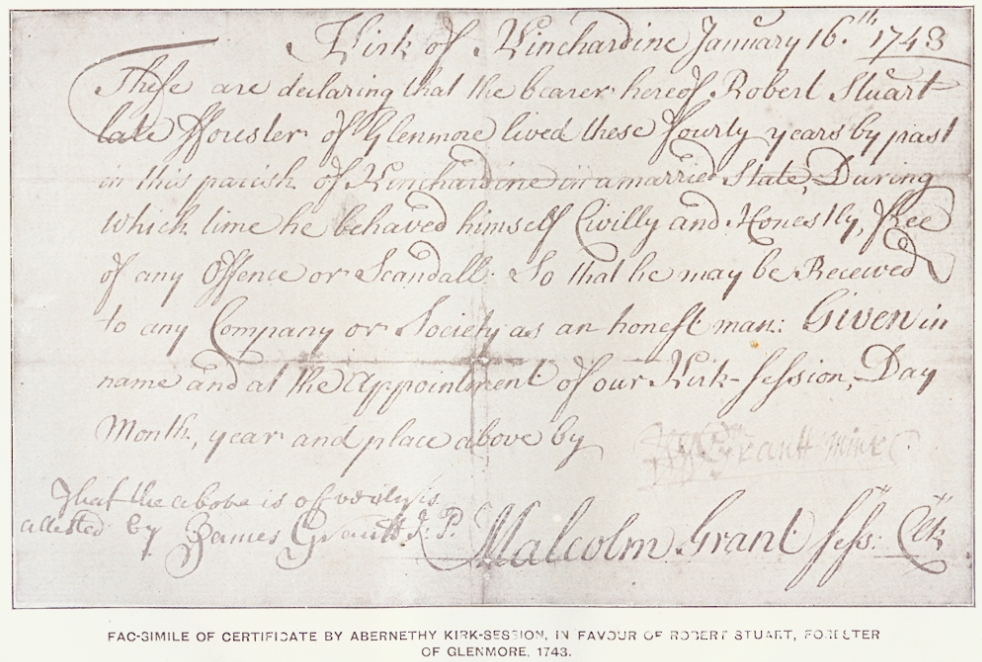 Kirk of Kinchardine January 16.th 1743
These are declaring that the bearer hereof Robert Stuart
late fforester of Glenmore lived these fourty years by past
in this parish of Kinchardine in a married State, During
which time he behaved himself Civilly and Honestly, free
of any Offence or Scandall. So that he may be Received
to any Company or Society as an honest man: Given in
name and at the Appointment of our Kirk-session, Day
Month, year and place above by
Grant minr.
That the above is of verity is
attested by James Grantt J. P.
Malcolm Grant Sess: Clk
FAC-SIMILE OF CERTIFICATE BY ABERNETHY KIRK-SESSION, IN FAVOUR OF ROBERT STUART, FORESTER
OF GLENMORE, 1743.